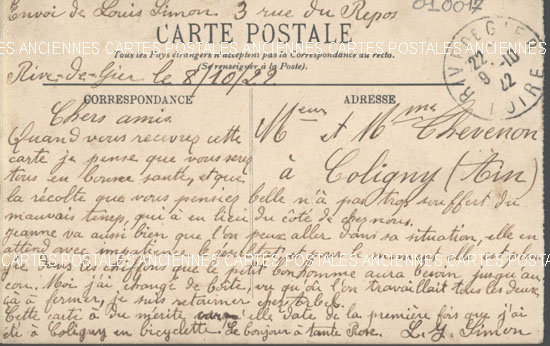 Envoi de Louis Simon 3 rue du Repos
010017
CARTE POSTALE
Tous les Pays étrangers n'acceptent pas la Correspondance au recto.
(Se renseigner à la Poste).
Rive-de-Gier le 8/10/22
RIVE DE GIER
22
9-10
22
LOIRE
CARTES ANCIENNES CARTES ANCIENNES CARTES ANCIENNES
CORRESPONDANCE
ADRESSE
Chers amis
Meur et Mme Thevenon
à
Coligny (Ain)
Quand vous recevrez cette
carte je pense que vous serez
tous en bonne santé, et que
la récolte que vous pensiez belle n'à pas trop souffert du
mauvais temps, qui à eu lieu du côté de chez nous.
Jeanne va aussi bien que l'on peux aller dans sa situation, elle en
attend avec impatience le résultat et un heureux
dans les chiffons que le petit bonhomme aura besoin jusqu'au
Moi j'ai changé de boîte, vu qu'où l'on travaillait tous les deux,
ça à fermer, je suis retourner chez Arbel.
Cette carte à du mérite, elle date de la première fois que j'ai
été à Coligny en bicyclette. Le bonjour à tante Rose. L. J. Simon